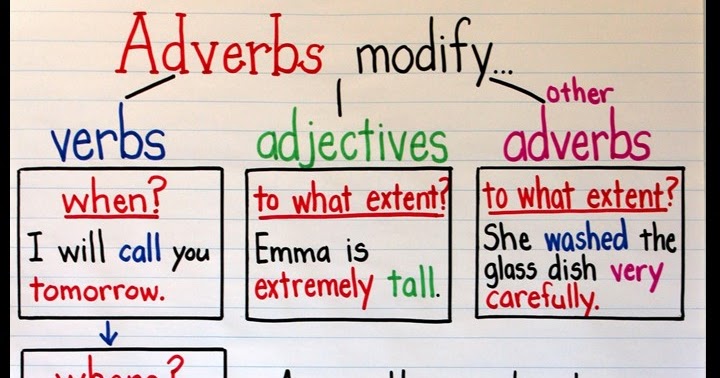 Adverbs modify...
verbs
when?
I will call you
tomorrow.
adjectives
to what extent?
Emma is
extremely tall.
other
adverbs
to what extent?
She washed the
glass dish very
carefully.
where?